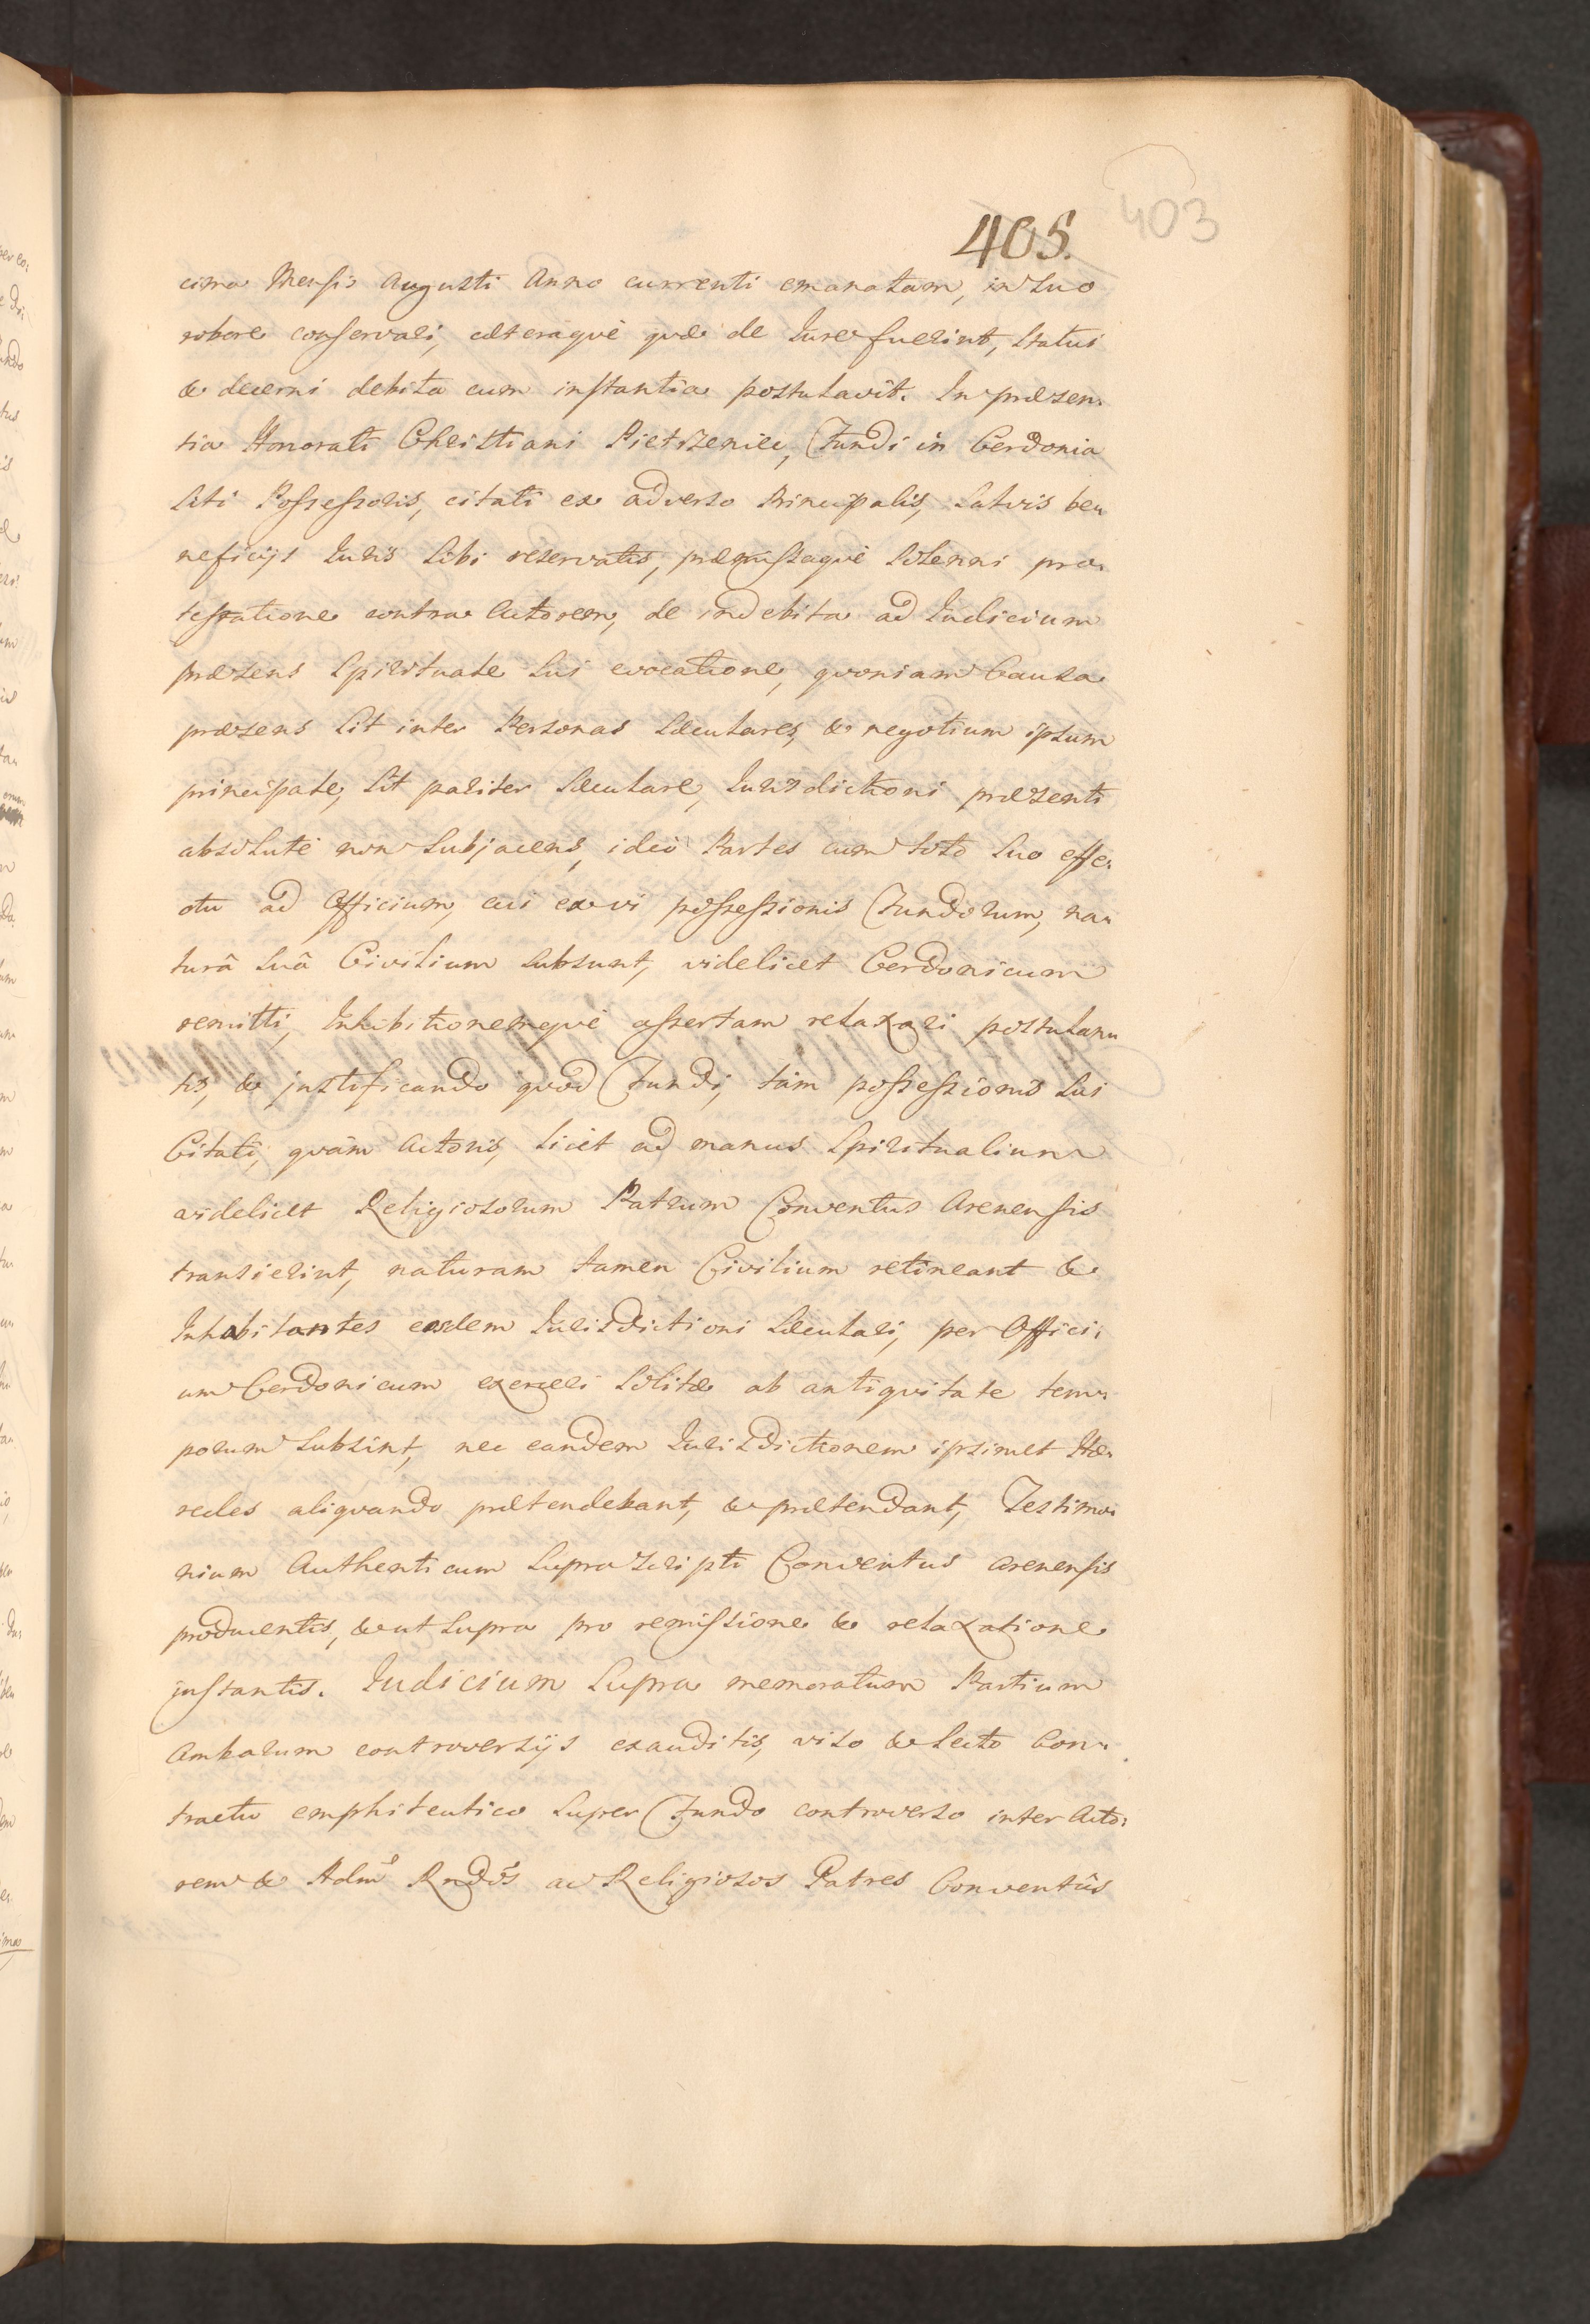 403
405.
cima Mensis Augusti Anno currenti emanatam, in suo
robore conservari, cæteraquè quæ de Iure fuerint, statui
& decerni debita cum instantia postulavit. In præsen-
tia Honorati Christiani Fundi in Cerdonia
siti Possessoris, citati ex adverso Principalis, salvis be-
neficijs Iuris sibi reservatis, præmissaquè solenni pro-
testatione contra Actorem, de indebita ad Iudicium
præsens Spirituale sui evocatione, quoniam Causa
præsens sit inter Personas sæculares, & negotium ipsum
principale, sit pariter sæculare, Iurisdictioni præsenti
absolutè non subjacens, ideò Partes cum toto suo effe-
ctu ad Officium, cui ex vi possessionis Fundorum, na-
turâ suâ Civilium subsunt, videlicet Cerdonicum
remitti, Inhibitionemquè assertam relaxari postulan-
tis, & justificando quod Fundi, tàm possessionis sui
Citati, quàm Actoris, licèt ad manus Spiritualium
videlicet Religiosorum Patrum Conventus Arenensis
transierint, naturam tamen Civilium retineant &
Inhabitantes eosdem Iurisdictioni sæculari, per Offici-
um Cerdonicum exerceri solitæ ab antiquitate tem-
porum subsint, nec eandem Iurisdictionem ipsimet Hæ-
redes aliquando prætendebant, & prætendant, Testimo-
nium Authenticum suprascripti Conventus Arenensis
producentis, & ut supra pro remissione & relaxatione
instantis. Iudicium supra memoratum Partium
Ambarum controversijs exauditis, viso & lecto Con-
tractu emphiteutico super Fundo controverso inter Acto-
rem & Adm̃ Rndõs ac Religiosos Patres Conventûs